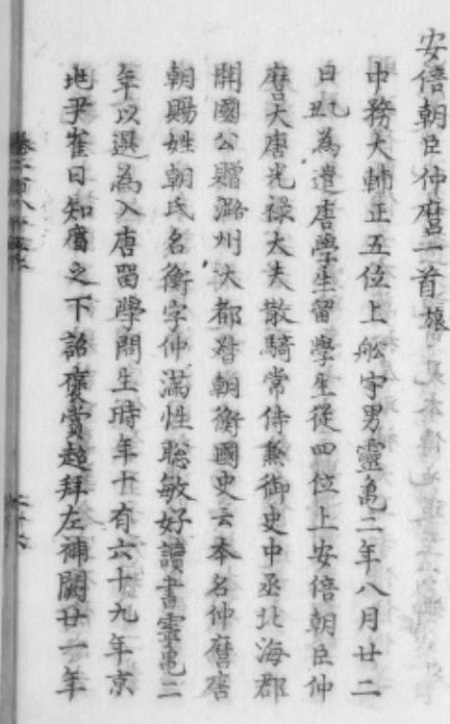 安倍朝臣仲麿一首
中務大輔正五位上舩守男靈亀二年八月廿二
日乙丑為遣唐學生留學生従四位上安倍朝臣仲
麿大唐光禄大夫散騎常侍兼御史中丞北海郡
開國公贈潞州大都督朝衡國史云本名仲麿唐
朝賜姓朝氏名衡字仲満性聡敏好讀書靈亀二
年以選為入唐留學問生時年十有六十九年京
兆尹崔日知薦之下詔褒賞超拜左補闕廿一年